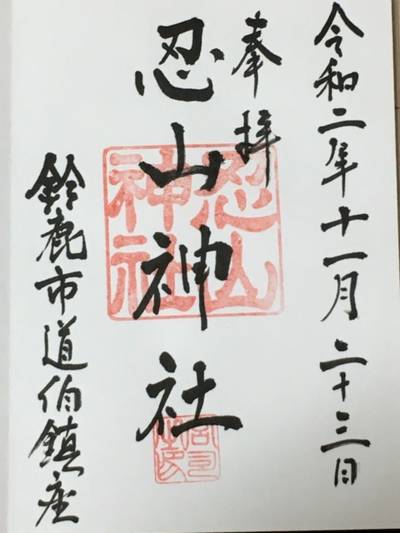 令和二年十一月二十三日
奉拝
忍山神社
忍山
神社
鈴鹿市道伯鎮座